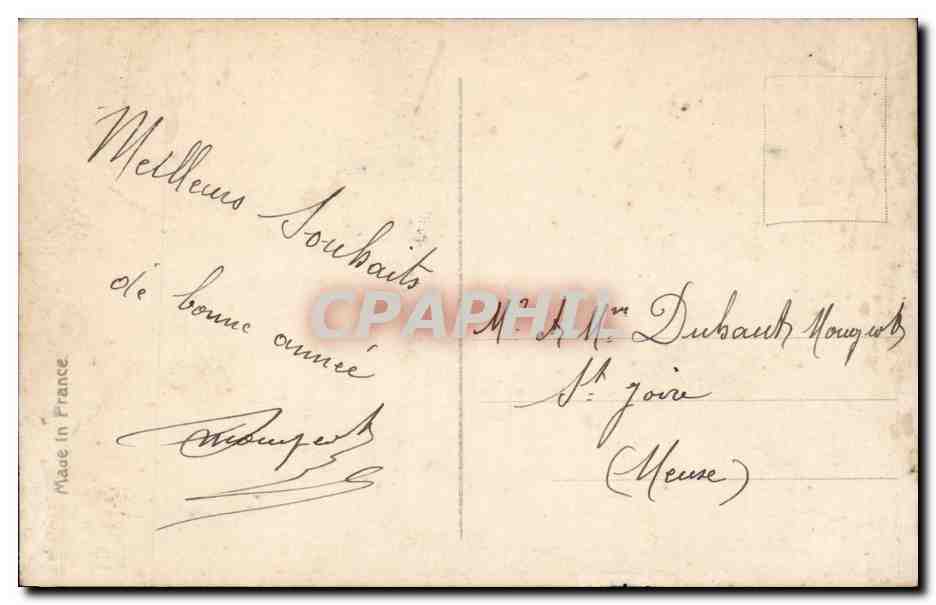 Meilleurs Souhaits
de bonne année
Mougeot
Mr & Mme Dubaut Mougeot
St. Joire
(Meuse)
Made in France
CPAPHIL